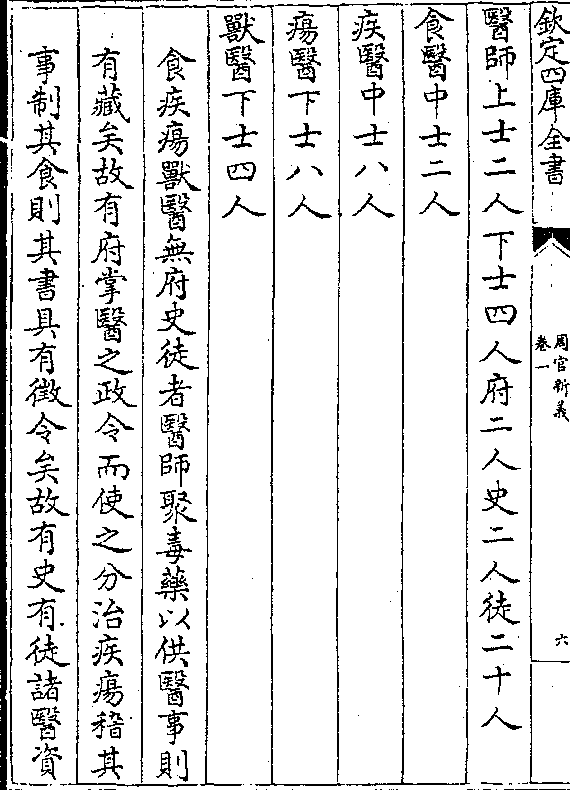 欽定四庫全書
周官新義
卷一
六
醫師上士二人下士四人府二人史二人徒二十人
食醫中士二人
疾醫中士八人
瘍醫下士八人
獸醫下士四人
食疾瘍獸醫無府史徒者醫師聚毒藥以供醫事則
有藏矣故有府掌醫之政令而使之分治疾瘍稽其
事制其食則其書具有徵令矣故有史有徒諸醫資